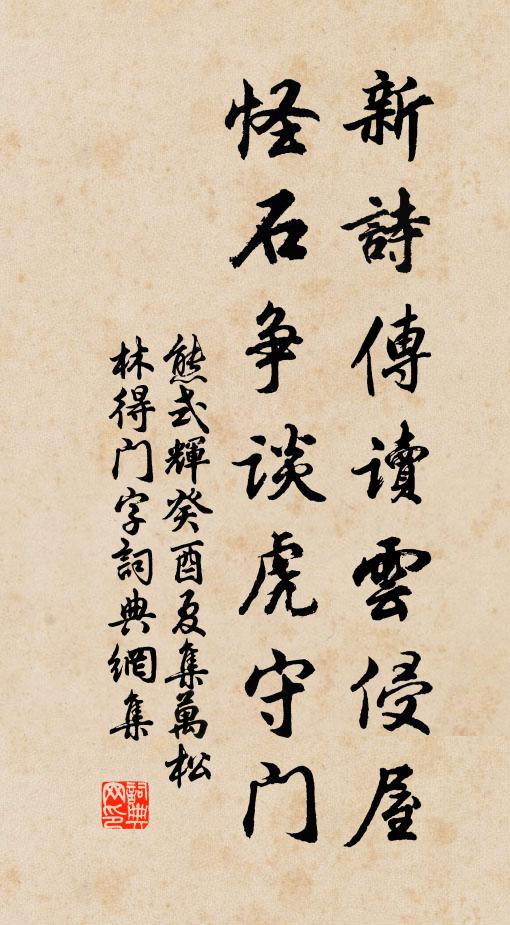 新詩傳讀雲侵屋
怪石爭談虎守門
熊式輝癸酉夏集萬松
林得門字詞典網集
詞典
网印